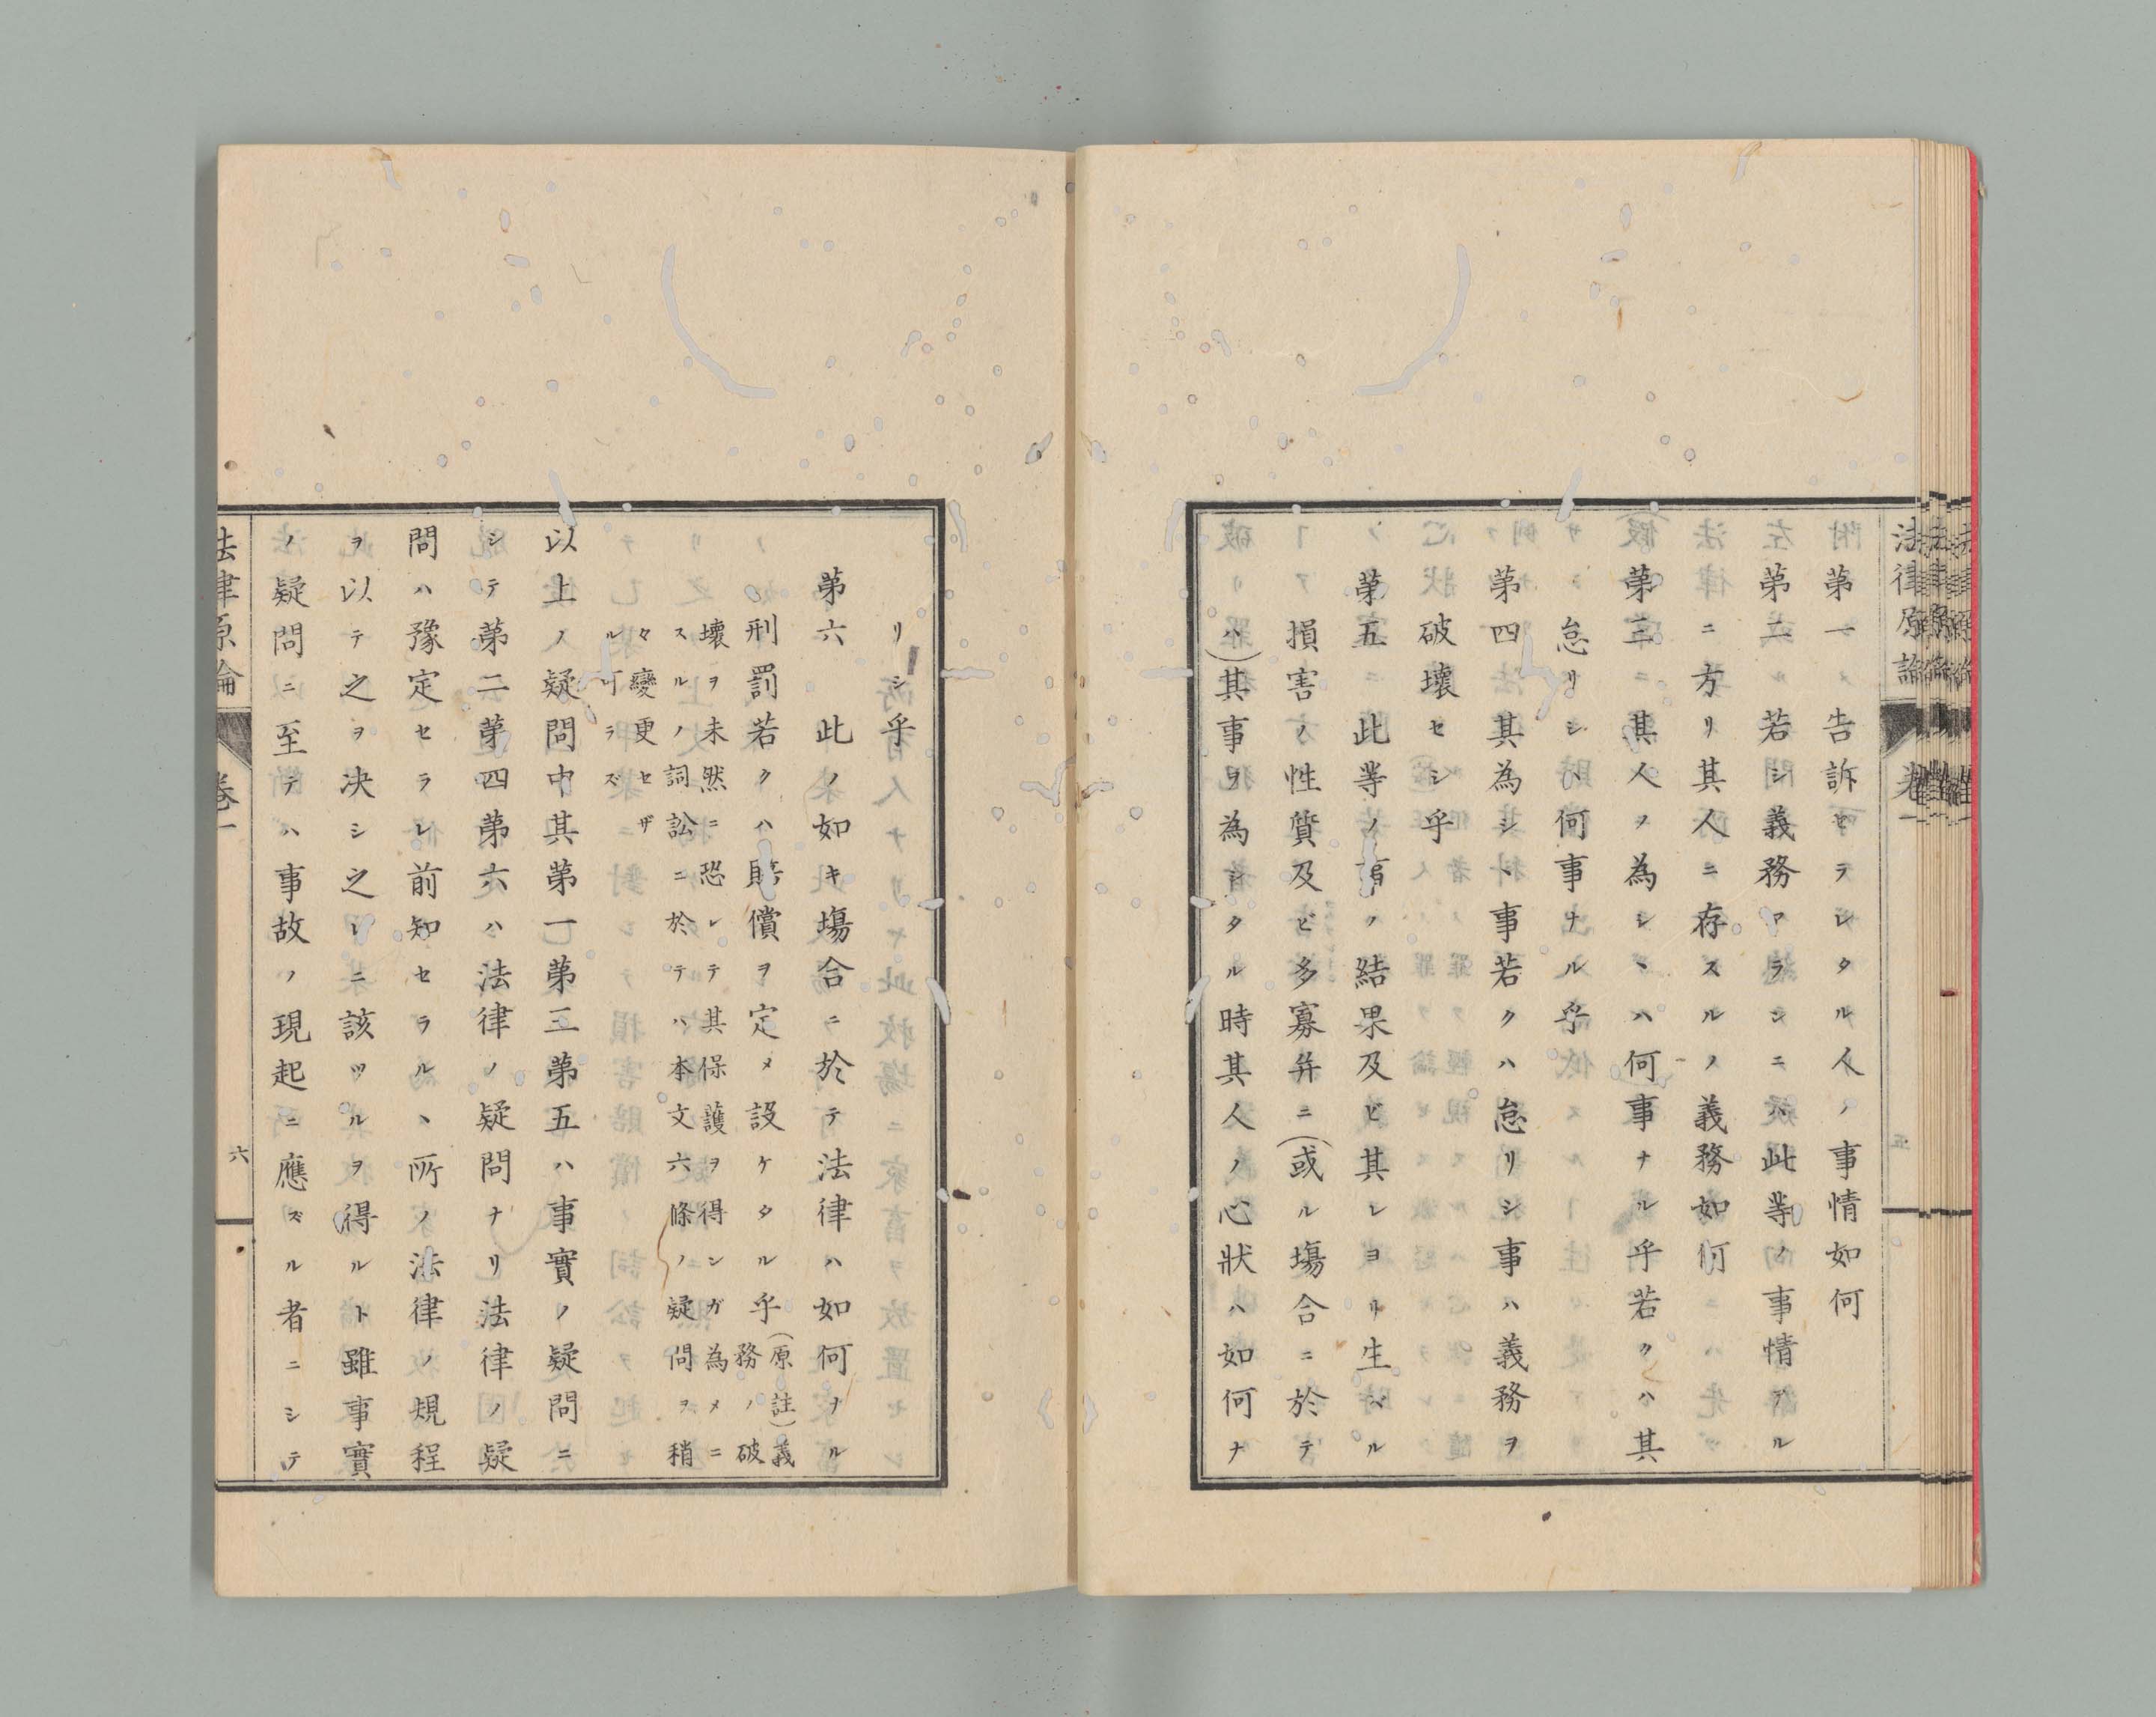 法律原論 卷一 五
第一 告訴セラレタル人ノ事情如何
第二 若シ義務アラシニハ此等ノ事情アル
法律ニ方リ其人ニ存スルノ義務如何
第三 其人ヲ為シヽハ何事ナル乎若クハ其
怠リシハ何事ナル乎
第四 其為シヽ事若クハ怠リシ事ハ義務ヲ
破壞セシ乎
第五 此等ノ事ノ結果及ビ其レヨリ生ズル
損害ノ性質及ビ多寡并ニ(或ル塲合ニ於テ
ハ)其事ヲ為シタル時其人ノ心狀ハ如何ナ
リシ乎
第六 此ノ如キ塲合ニ於テ法律ハ如何ナル
刑罰若クハ賠償ヲ定メ設ケタル乎(原註)義
務ノ破
壞ヲ未然ニ恐レテ其保護ヲ得ンガ為メニ
スルノ詞訟ニ於テハ本文六條ノ疑問ヲ稍
々變更セザ
ル可ラズ
以上ノ疑問中其第一第三第五ハ事實ノ疑問ニ
シテ第二第四第六ハ法律ノ疑問ナリ法律ノ疑
問ハ豫定セラレ前知セラルヽ所ノ法律ノ規程
ヲ以テ之ヲ决シ之レニ該ツルヲ得ルト雖事實
ノ疑問ニ至テハ事故ノ現起ニ應ズル者ニシテ
法律原論 卷一 六